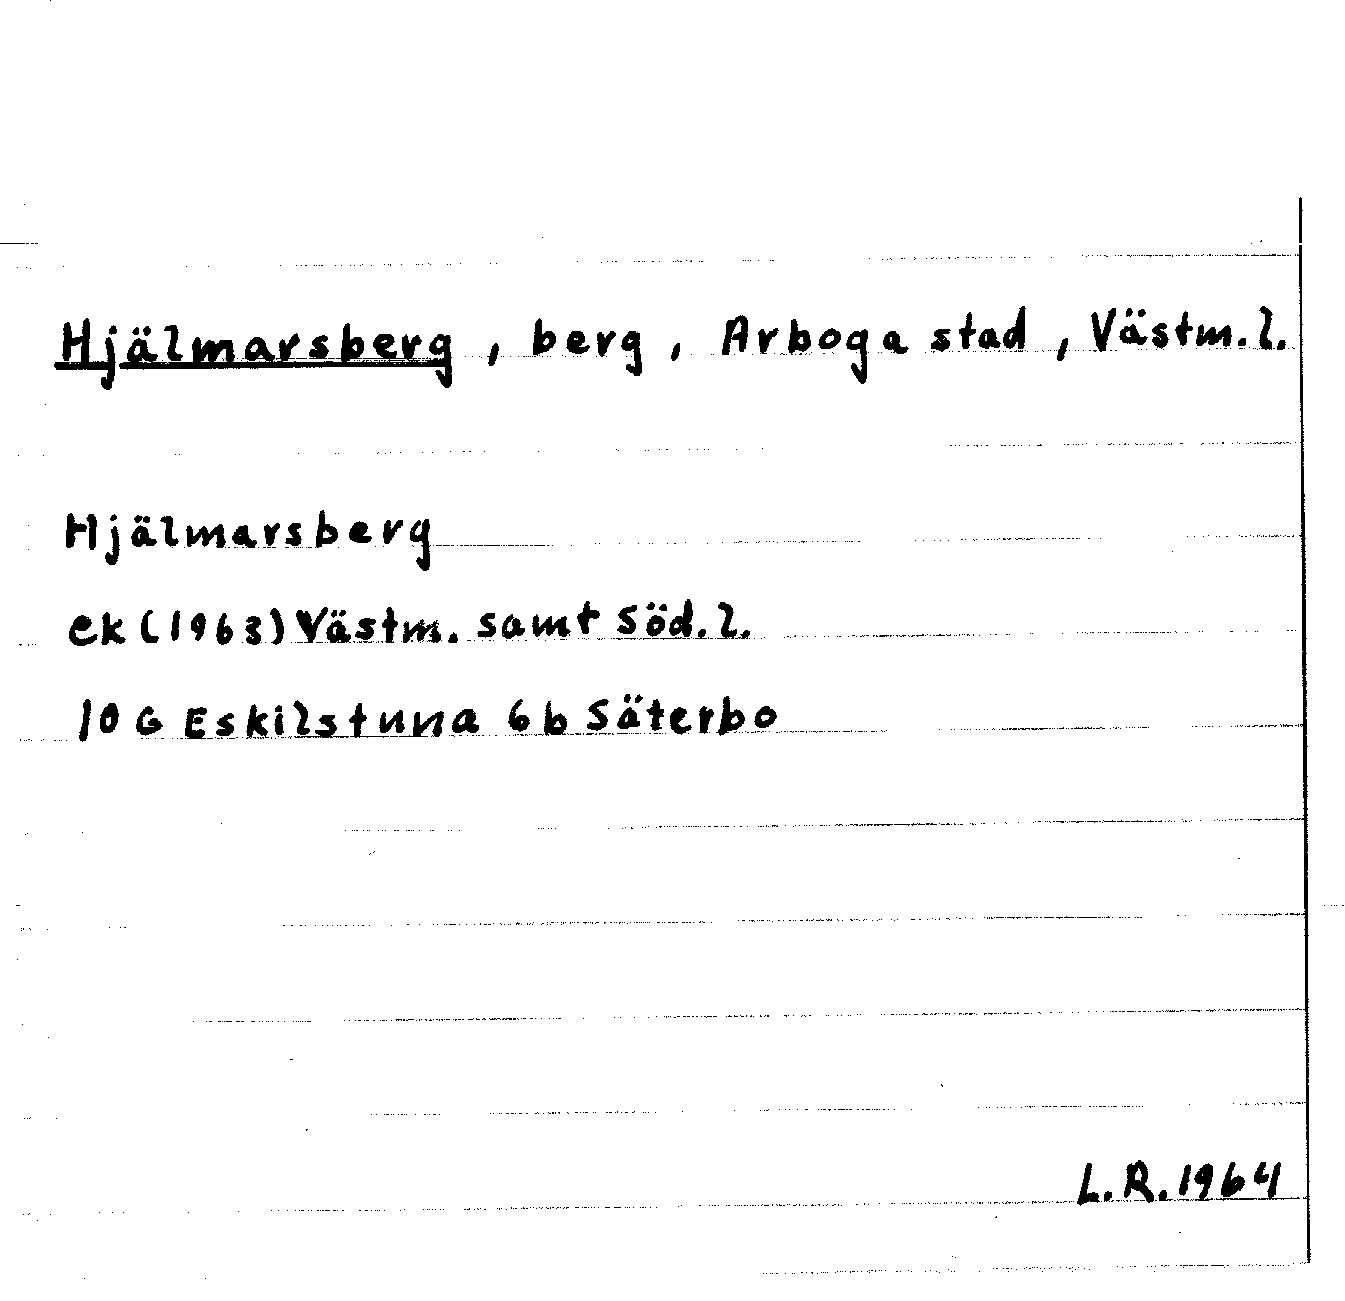 Hjälmarsberg, berg, Arboga stad, Västm.l.
Hjälmarsberg
ek (1963) Västm. samt Söd.l.
10 G Eskilstuna 6b Säterbo
L.R. 1964